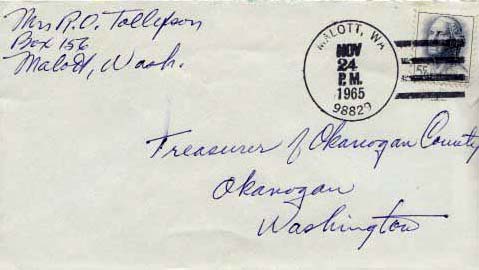 Mrs R.O. Tollefson
Box 156
Malott, Wash.
MALOTT, WA
NOV
24
P.M.
1965
98829
5¢
Treasurer of Okanogan County
Okanogan
Washington